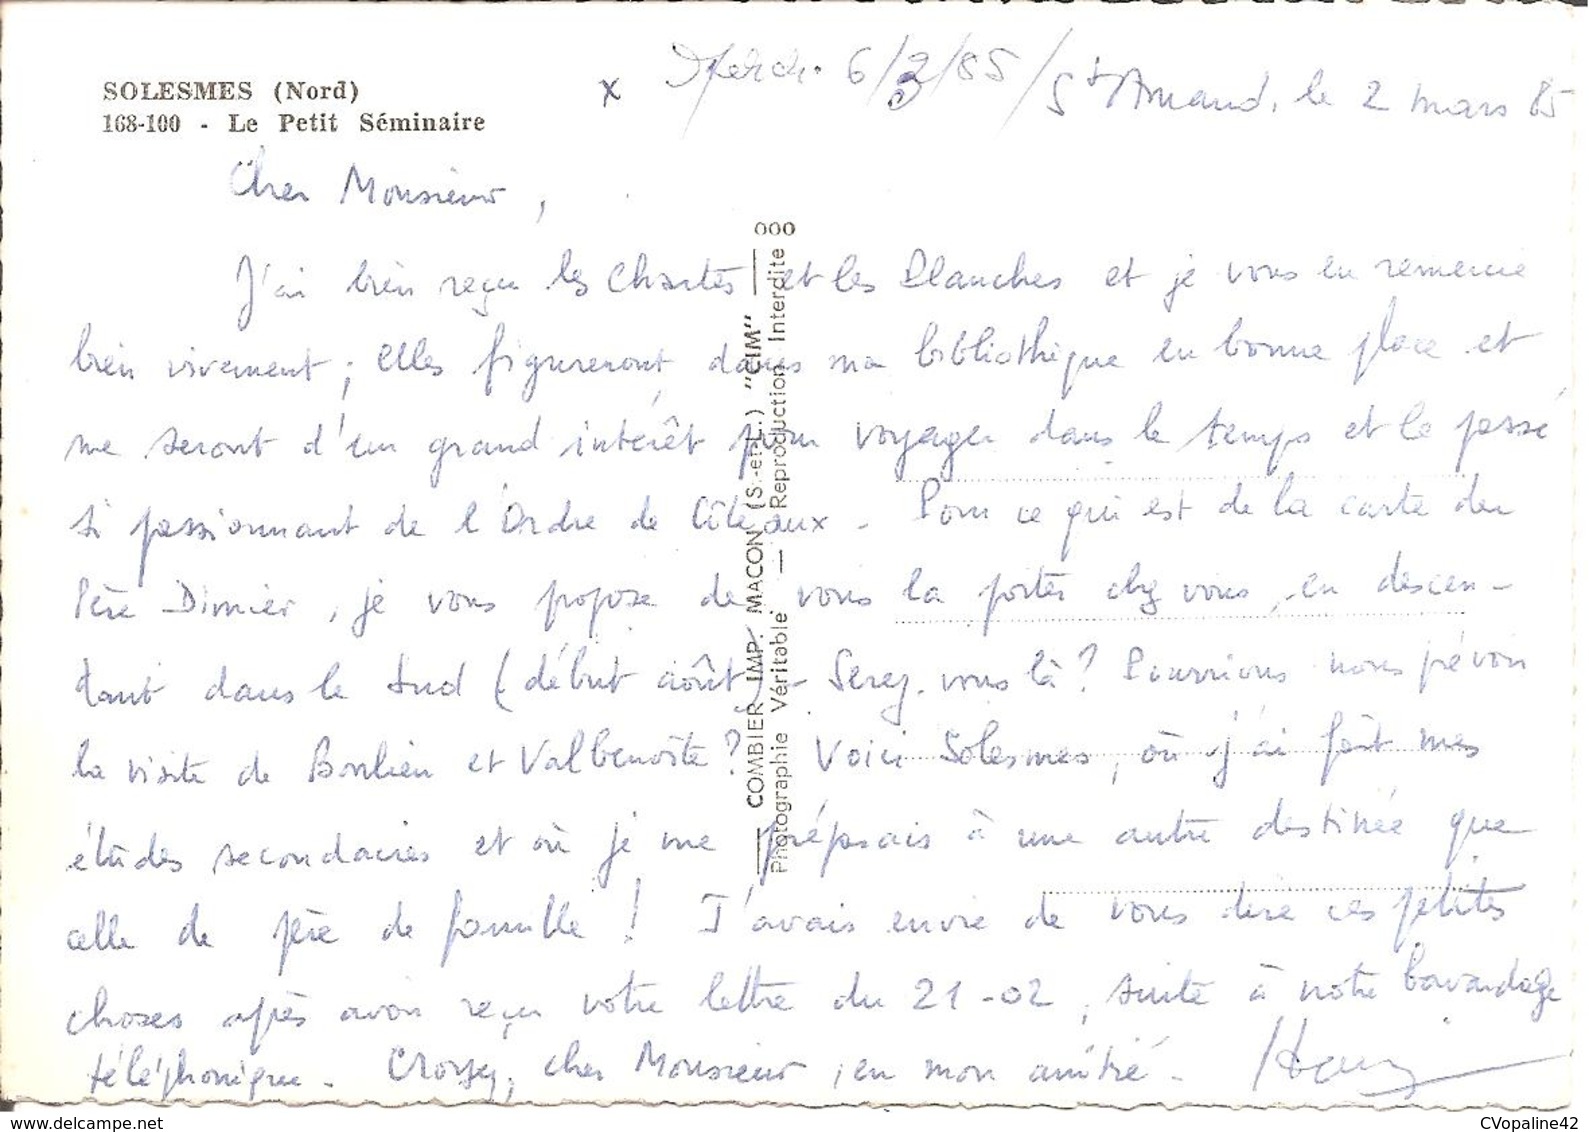 SOLESMES (Nord)
168-100 - Le Petit Séminaire
x Merdi 6/3/85 / St Amand, le 2 mars 85
Cher Monsieur,
J'ai bien reçu les Chartes et les Planches et je vous en remercie
bien vivement ; elles figureront dans ma bibliothèque en bonne place et
me seront d'un grand intérêt pour voyager dans le temps et le passé
si passionnant de l'Ordre de Cîteaux - Pour ce qui est de la carte du
Père Dimier, je vous propose de vous la porter chez vous, en descen-
dant dans le Sud (début août) - Serez-vous là ? Pourrions nous prévoir
la visite de Bonlieu et Valbenoîte ? Voici Solesmes, où j'ai fait mes
études secondaires et où je me préparais à une autre destinée que
celle de père de famille ! J'avais envie de vous dire ces petites
choses après avoir reçu votre lettre du 21-02, suite à notre bavardage
téléphonique - Croyez, cher Monsieur, en mon amitié -
COMBIER IMP. MACON (S.-et-L.) "CIM"
Photographie Véritable — Reproduction Interdite
000
CVopaline42